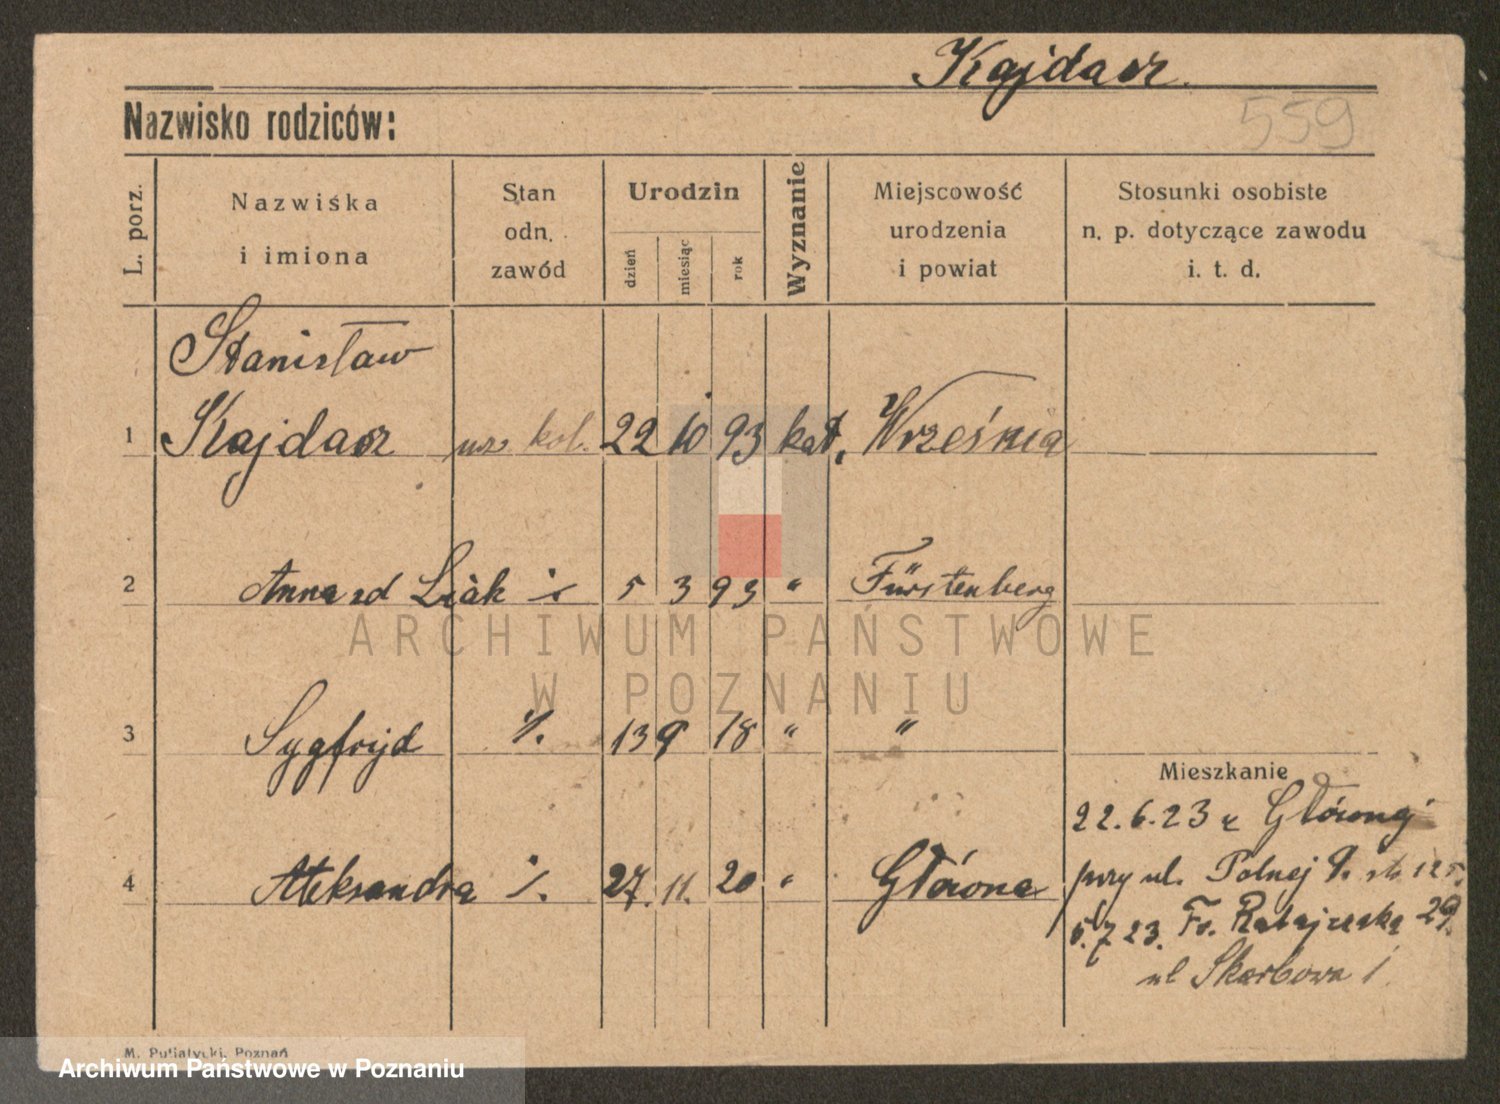 Kajdasz.
559
Nazwisko rodziców:
L. porz.
Nazwiska
i imiona
Stan
odn.
zawód
Urodzin
dzień
miesiąc
rok
Wyznanie
Miejscowość
urodzenia
i powiat
Stosunki osobiste
n. p. dotyczące zawodu
i. t. d.
Stanisław
1 Kajdasz urz kol. 22 10 93 kat. Września
2 Anna zd 5 3 93 " Fürstenberg
3 Sygfryd %. 13 9 18 " "
Mieszkanie
22.6.23 z Głównej
4 Aleksandra %. 27. 11. 20 " Główna
przy ul. Polnej 9.
5.7 23. Fr. Ratajczaka 29.
ul Skarbowa 1
ARCHIWUM PAŃSTWOWE
W POZNANIU
M. Putiatycki, Poznań
Archiwum Państwowe w Poznaniu